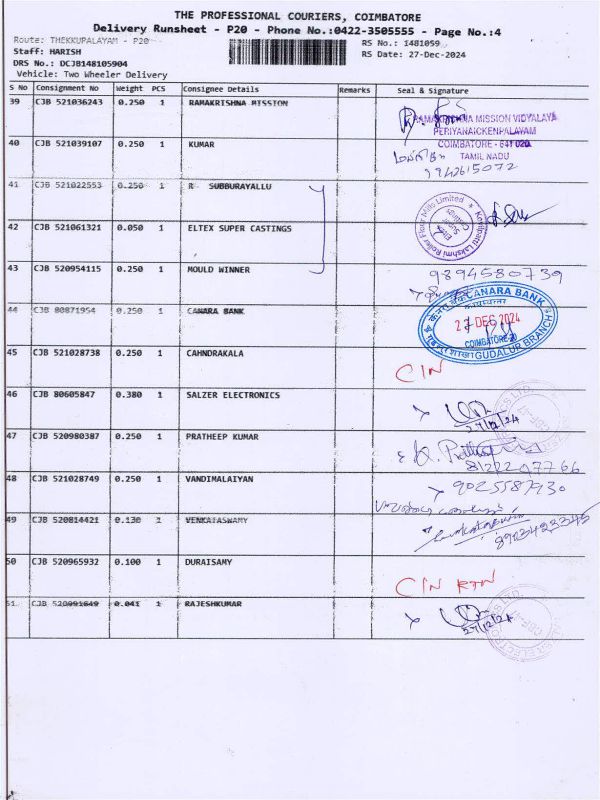 THE PROFESSIONAL COURIERS, COIMBATORE
Delivery Runsheet - P20 - Phone No.:0422-3505555 - Page No.:4
Route: THEKKUPALAYAM - P20
RS No.: 1481059
Staff: HARISH
RS Date: 27-Dec-2024
DRS No.: DCJB148105904
Vehicle: Two Wheeler Delivery
S No Consignment No Weight PCS Consignee Details Remarks Seal & Signature
39 CJB 521036243 0.250 1 RAMAKRISHNA MISSION
RAMAKRISHNA MISSION VIDYALAYA
PERIYANAICKENPALAYAM
COIMBATORE - 641 020.
TAMIL NADU
40 CJB 521039107 0.250 1 KUMAR
41 CJB 521022553 0.250 1 R SUBBURAYALLU
42 CJB 521061321 0.050 1 ELTEX SUPER CASTINGS
43 CJB 520954115 0.250 1 MOULD WINNER
9894580739
44 CJB 80871954 0.250 1 CANARA BANK
CANARA BANK
27 DEC 2024
GUDALUR BRANCH
45 CJB 521028738 0.250 1 CAHNDRAKALA
C/N
46 CJB 80605847 0.380 1 SALZER ELECTRONICS
27/12/24
47 CJB 520980387 0.250 1 PRATHEEP KUMAR
48 CJB 521028749 0.250 1 VANDIMALAIYAN
9025587930
49 CJB 520814421 0.130 1 VENKATASWAMY
8903423345
50 CJB 520965932 0.100 1 DURAISAMY
C/N RTN
51 CJB 520991649 0.041 1 RAJESHKUMAR
27/12/24